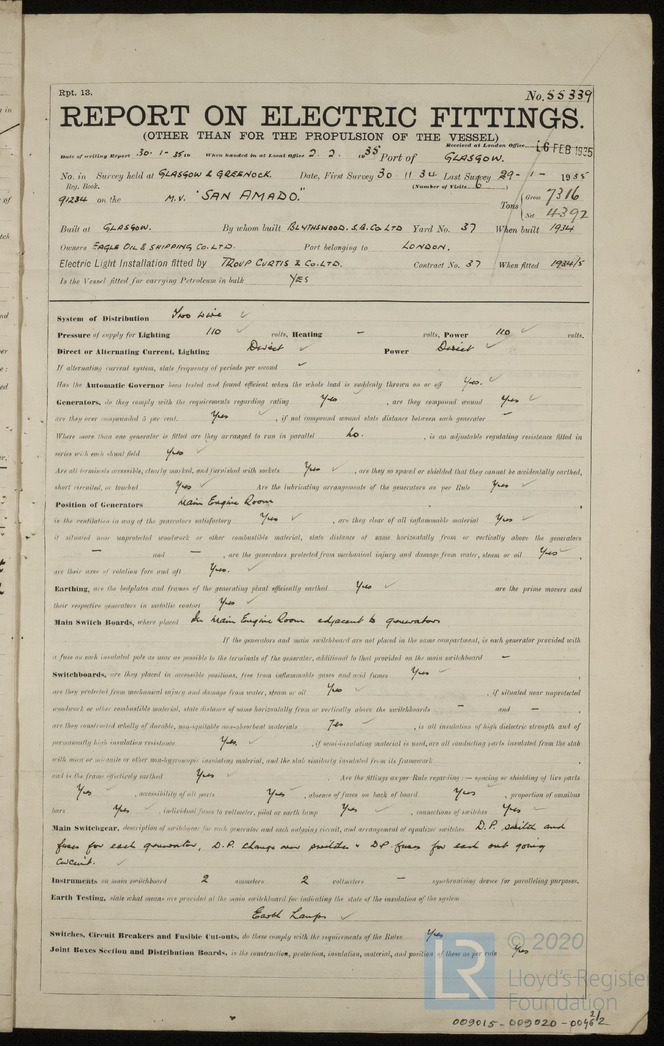 Rpt. 13.
No. 55339
REPORT ON ELECTRIC FITTINGS.
(OTHER THAN FOR THE PROPULSION OF THE VESSEL)
Received at London Office 16 FEB 1935
Date of writing Report 30-1-35 When handed in at Local Office 2.2.1935 Port of GLASGOW.
No. in Survey held at GLASGOW & GREENOCK. Date, First Survey 30 11 34 Last Survey 29-1-1935
Reg. Book. (Number of Visits 6)
91234 on the M.V. "SAN AMADO." Tons { Gross 7316
Net 4392
Built at GLASGOW. By whom built BLYTHSWOOD. S.B. CO LTD Yard No. 37 When built 1934
Owners EAGLE OIL & SHIPPING CO. LTD. Port belonging to LONDON.
Electric Light Installation fitted by TROUP CURTIS & CO. LTD. Contract No. 37 When fitted 1934/5
Is the Vessel fitted for carrying Petroleum in bulk YES
System of Distribution Two wire ✓
Pressure of supply for Lighting 110 ✓ volts, Heating – volts, Power 110 ✓ volts.
Direct or Alternating Current, Lighting Direct ✓ Power Direct ✓
If alternating current system, state frequency of periods per second ✓
Has the Automatic Governor been tested and found efficient when the whole load is suddenly thrown on or off Yes. ✓
Generators, do they comply with the requirements regarding rating Yes ✓ , are they compound wound Yes ✓
are they over compounded 5 per cent. Yes ✓ , if not compound wound state distance between each generator –
Where more than one generator is fitted are they arranged to run in parallel No. , is an adjustable regulating resistance fitted in
series with each shunt field Yes ✓
Are all terminals accessible, clearly marked, and furnished with sockets Yes ✓ , are they so spaced or shielded that they cannot be accidentally earthed,
short circuited, or touched Yes ✓ Are the lubricating arrangements of the generators as per Rule Yes ✓
Position of Generators Main Engine Room
is the ventilation in way of the generators satisfactory Yes ✓ , are they clear of all inflammable material Yes ✓
if situated near unprotected woodwork or other combustible material, state distance of same horizontally from or vertically above the generators
– and – , are the generators protected from mechanical injury and damage from water, steam or oil Yes ✓ ,
are their axes of rotation fore and aft Yes. ✓
Earthing, are the bedplates and frames of the generating plant efficiently earthed Yes ✓ are the prime movers and
their respective generators in metallic contact Yes ✓
Main Switch Boards, where placed In Main Engine Room adjacent to generators
If the generators and main switchboard are not placed in the same compartment, is each generator provided with
a fuse on each insulated pole as near as possible to the terminals of the generator, additional to that provided on the main switchboard –
Switchboards, are they placed in accessible positions, free from inflammable gases and acid fumes Yes ✓
are they protected from mechanical injury and damage from water, steam or oil Yes ✓ , if situated near unprotected
woodwork or other combustible material, state distance of same horizontally from or vertically above the switchboards – and – ,
are they constructed wholly of durable, non-ignitable non-absorbent materials Yes ✓ , is all insulation of high dielectric strength and of
permanently high insulation resistance Yes. ✓ , if semi-insulating material is used, are all conducting parts insulated from the slab
with mica or micanite or other non-hygroscopic insulating material, and the slab similarly insulated from its framework ,
and is the frame effectively earthed Yes ✓ Are the fittings as per Rule regarding:— spacing or shielding of live parts
Yes ✓ , accessibility of all parts Yes ✓ , absence of fuses on back of board Yes ✓ , proportion of omnibus
bars Yes ✓ , individual fuses to voltmeter, pilot or earth lamp Yes ✓ , connections of switches Yes ✓
Main Switchgear, description of switchgear for each generator and each outgoing circuit, and arrangement of equalizer switches D.P. switch and
fuses for each generator, D.P. change over switches & DP fuses for each out going
circuit. ✓
Instruments on main switchboard 2 ammeters 2 voltmeters – synchronising device for paralleling purposes.
Earth Testing, state what means are provided at the main switchboard for indicating the state of the insulation of the system
Earth Lamps ✓
Switches, Circuit Breakers and Fusible Cut-outs, do these comply with the requirements of the Rules Yes
Joint Boxes Section and Distribution Boards, is the construction, protection, insulation, material, and position of these as per rule Yes
LR
© 2020
Lloyd's Register
Foundation
009015-009020-0046 2/2